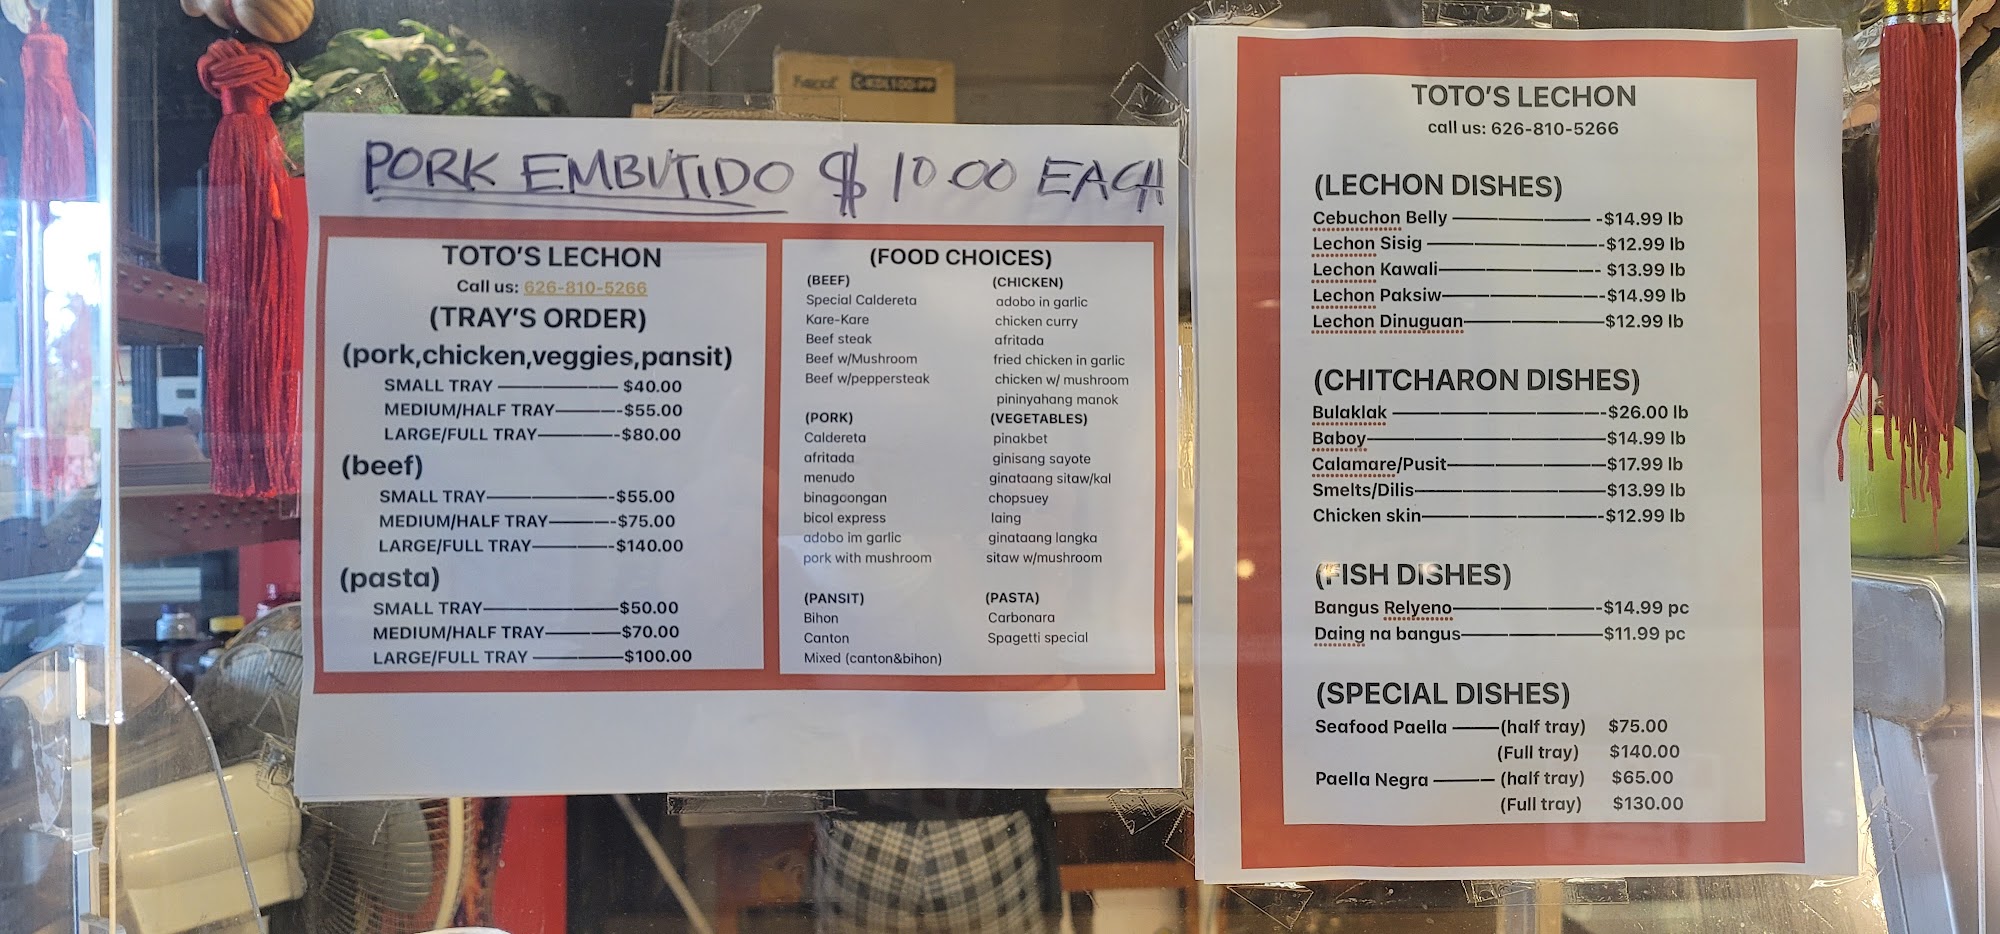 PORK EMBUTIDO $10.00 EACH
TOTO'S LECHON
Call us: 626-810-5266
(TRAY'S ORDER)
(pork,chicken,veggies,pansit)
SMALL TRAY ———— $40.00
MEDIUM/HALF TRAY———-$55.00
LARGE/FULL TRAY———-$80.00
(beef)
SMALL TRAY————-$55.00
MEDIUM/HALF TRAY———-$75.00
LARGE/FULL TRAY———-$140.00
(pasta)
SMALL TRAY————-$50.00
MEDIUM/HALF TRAY———-$70.00
LARGE/FULL TRAY ———-$100.00
(FOOD CHOICES)
(BEEF)
Special Caldereta
Kare-Kare
Beef steak
Beef w/Mushroom
Beef w/peppersteak
(CHICKEN)
adobo in garlic
chicken curry
afritada
fried chicken in garlic
chicken w/ mushroom
pininyahang manok
(PORK)
Caldereta
afritada
menudo
binagoongan
bicol express
adobo im garlic
pork with mushroom
(VEGETABLES)
pinakbet
ginisang sayote
ginataang sitaw/kal
chopsuey
laing
ginataang langka
sitaw w/mushroom
(PANSIT)
Bihon
Canton
Mixed (canton&bihon)
(PASTA)
Carbonara
Spagetti special
TOTO'S LECHON
call us: 626-810-5266
(LECHON DISHES)
Cebuchon Belly ———— -$14.99 lb
Lechon Sisig ————-$12.99 lb
Lechon Kawali———— $13.99 lb
Lechon Paksiw————-$14.99 lb
Lechon Dinuguan————$12.99 lb
(CHITCHARON DISHES)
Bulaklak ————-$26.00 lb
Baboy————-$14.99 lb
Calamare/Pusit————$17.99 lb
Smelts/Dilis————-$13.99 lb
Chicken skin————-$12.99 lb
(FISH DISHES)
Bangus Relyeno————-$14.99 pc
Daing na bangus————$11.99 pc
(SPECIAL DISHES)
Seafood Paella ——(half tray) $75.00
(Full tray) $140.00
Paella Negra —— (half tray) $65.00
(Full tray) $130.00